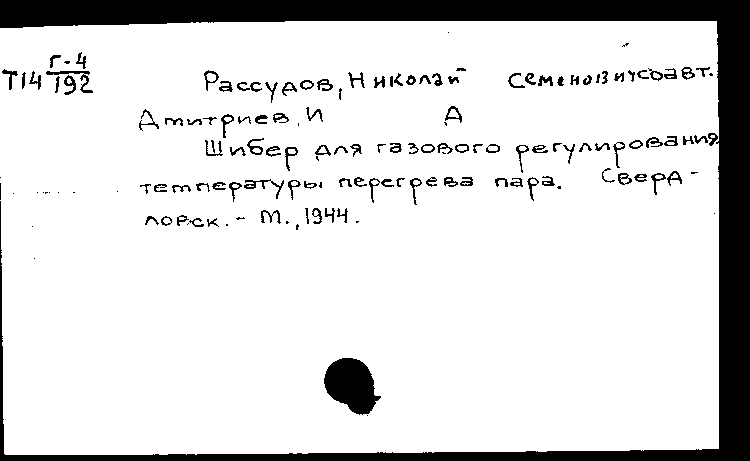 Т14 Г-4/192
Рассудов, Николай Семенович соавт.
Дмитриев, И А
Шибер для газового регулирования
температуры перегрева пара. Сверд-
ловск. - М., 1944.